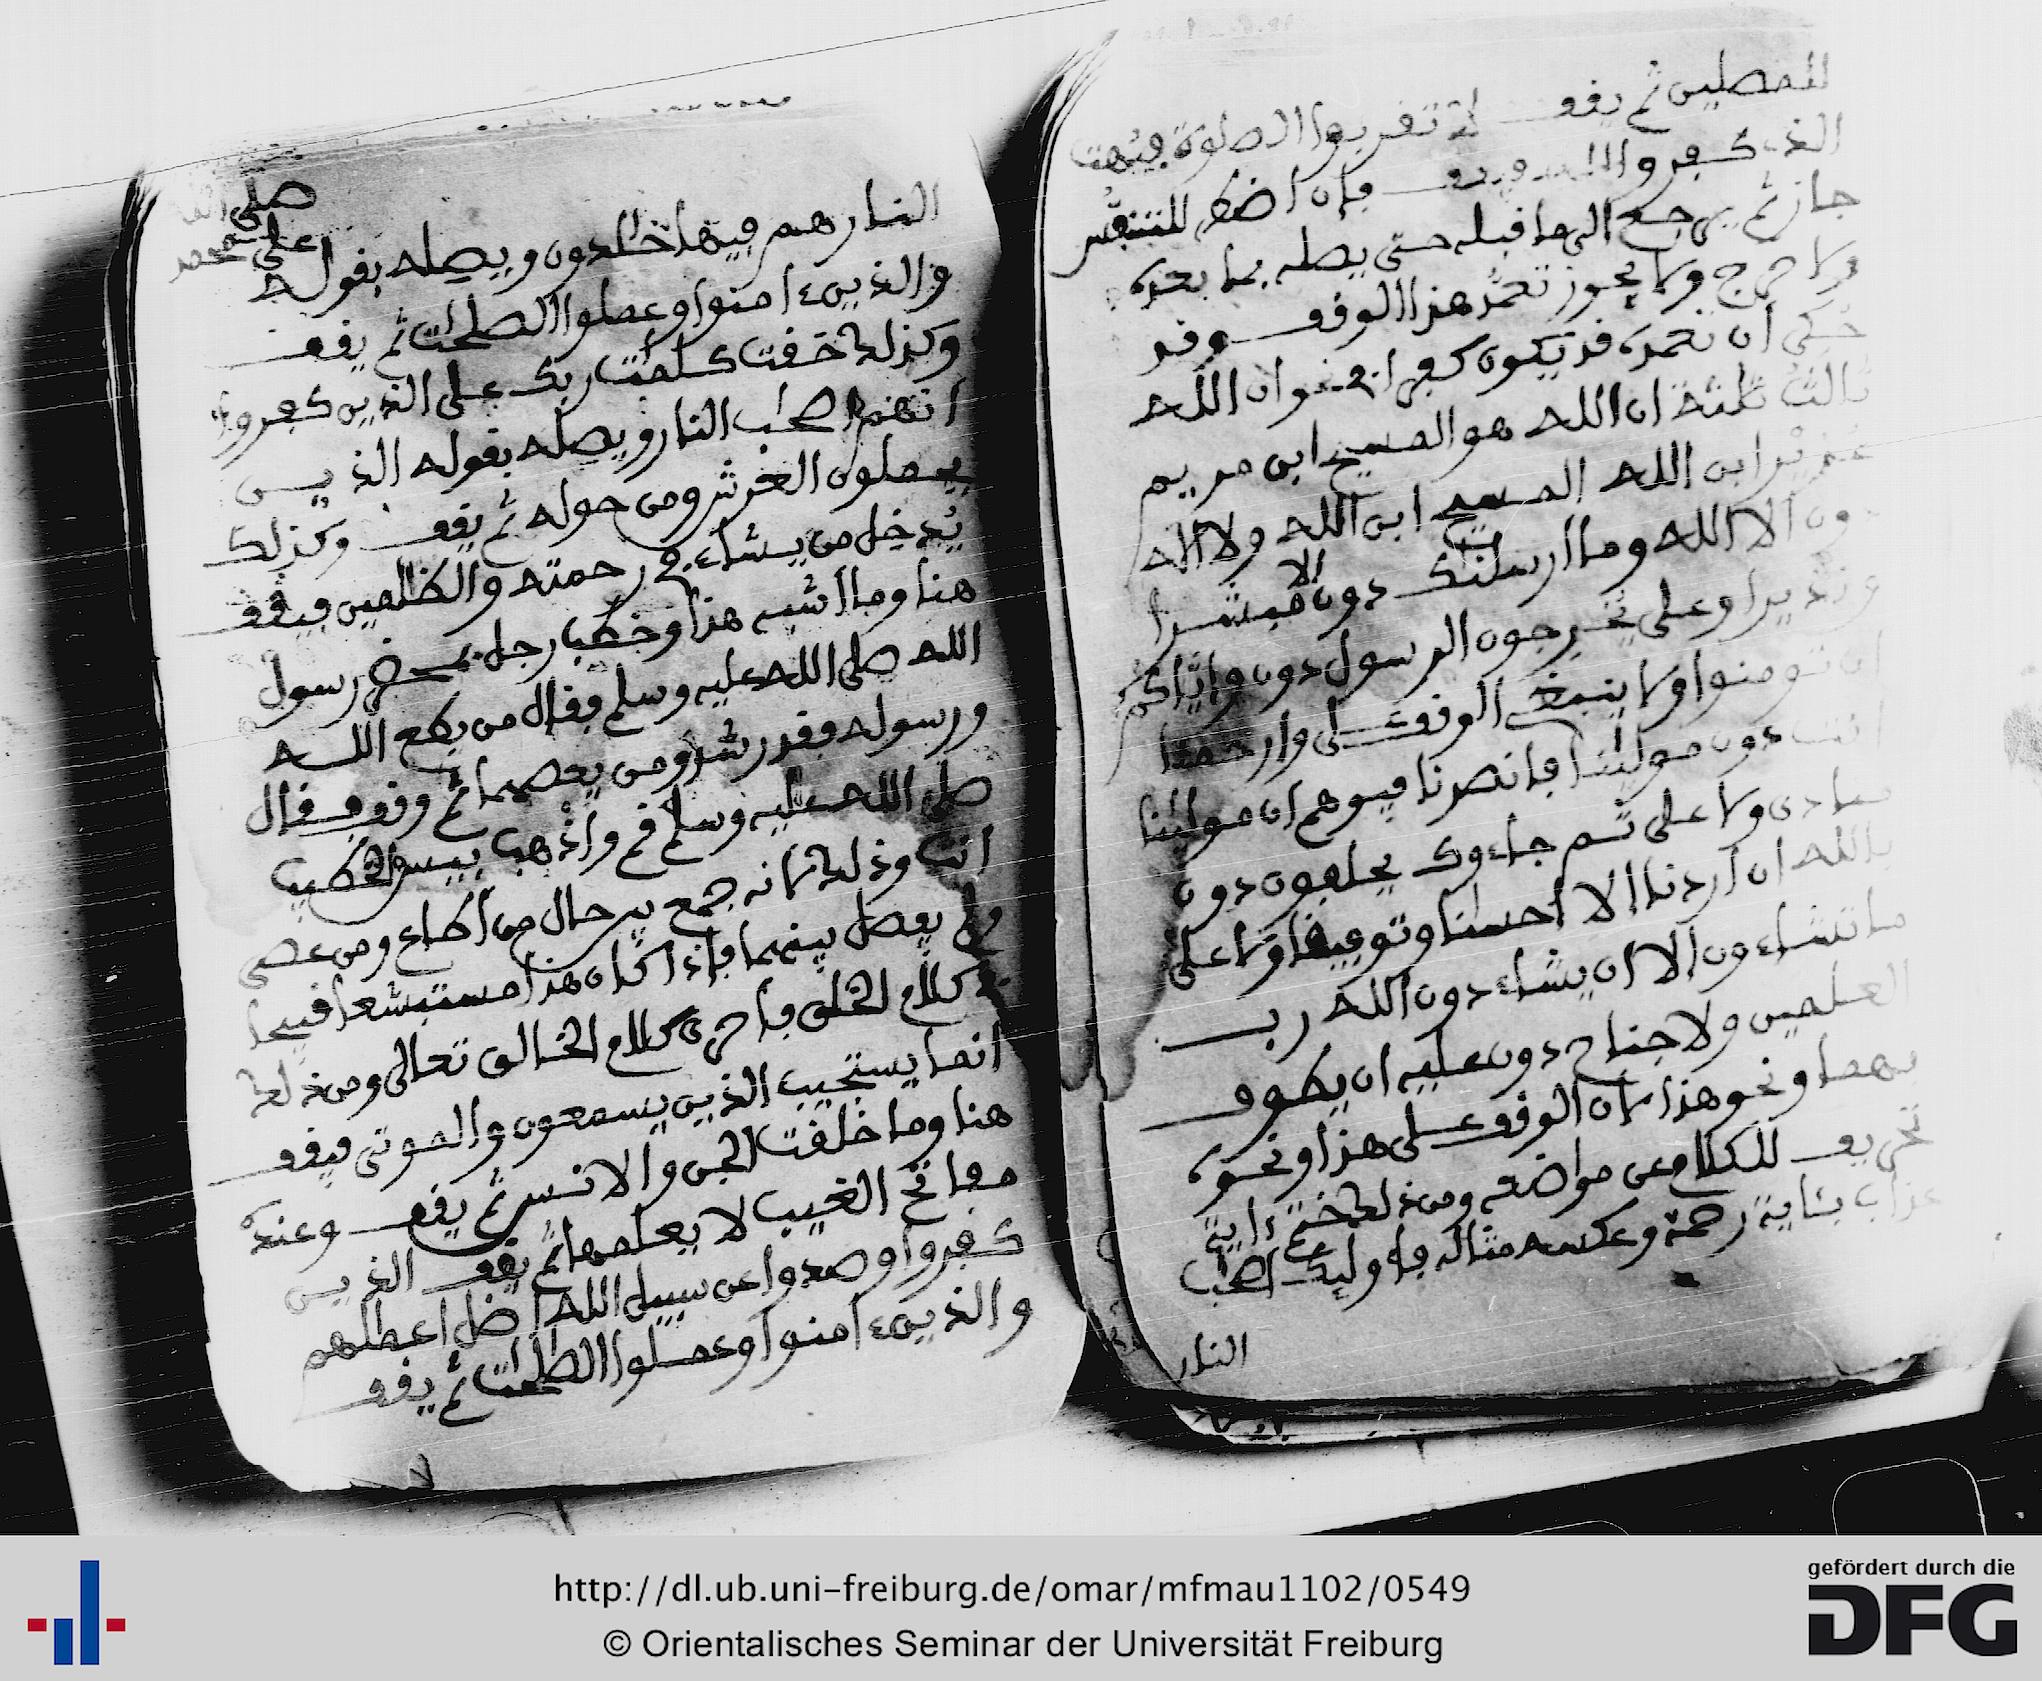 للمصلين ثم يقف لا تقربوا الصلوة فبهت
الذي كفر والله ويقف فإن اضطر للتنفس
جاز ثم يرجع الى ما قبله حتى يصله بما بعده
ولا حرج ولا يجوز تعمد هذا الوقف وقد
حكى أن تعمده قد يكون كفرا نحو ان الله
ثالث ثلثة ان الله هو المسيح ابن مريم
عزير ابن الله المسيح ابن الله ولا اله
دون الا الله وما ارسلنك دون الا مبشرا
ونذيرا وعلى يخرجون الرسول دون واياكم
ان تومنوا ولا ينبغي الوقف على وارحمنا
انت دون مولينا فانصرنا فيوهم ان مولينا
منادى ولا على ثم جاءوك يحلفون دون
بالله ان اردنا الا احسنا وتوفيقا ولا على
ما تشاءون الا ان يشاء دون الله رب
العلمين ولا جناح دون عليه ان يطوف
بهما ونحو هذا لان الوقف على هذا ونحوه
تحريف للكلام عن مواضعه ومن ذلك ختم ءاية
عذاب بئاية رحمة وعكسه مثاله فاوليك اصحب
النار
صلى الله
على محمد
النار هم فيها خلدون ويصله بقوله
والذين ءامنوا وعملوا الصلحت ثم يقف
وكذلك حقت كلمت ربك على الذين كفروا
انهم اصحب النار ويصله بقوله الذين
يحملون العرش ومن حوله ثم يقف وكذلك
يدخل من يشاء في رحمته والظلمين فيقف
هنا وما اشبه هذا وخطب رجل بحضرة رسول
الله صلى الله عليه وسلم فقال من يطع الله
ورسوله فقد رشد ومن يعصهما ثم وقف فقال
صلى الله عليه وسلم قم واذهب بيس الخطيب
انت وذلك لانه جمع بين حال من اطاع ومن عصى
ولم يفصل بينهما فإذا كان هذا مستبشعا قبيحا
في كلام الخلق فاحرى كلام الخالق تعالى ومن ذلك
انما يستجيب الذين يسمعون والموتى فيقف
هنا وما خلقت الجن والانس ثم يقف وعنده
مفاتح الغيب لا يعلمها ثم يقف الذين
كفروا وصدوا عن سبيل الله اضل اعملهم
والذين ءامنوا وعملوا الصلحت ثم يقف
http://dl.ub.uni-freiburg.de/omar/mfmau1102/0549
© Orientalisches Seminar der Universität Freiburg
gefördert durch die
DFG